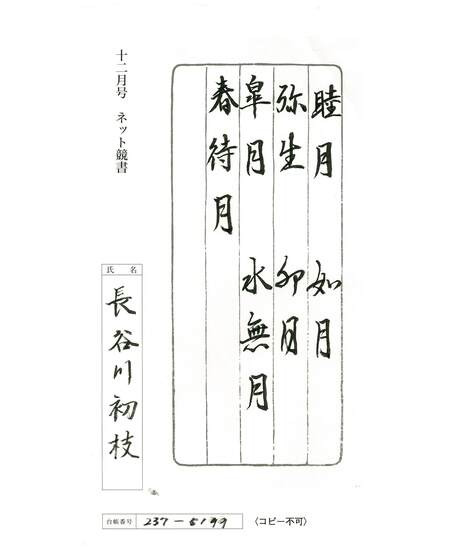 睦月 如月
弥生 卯月
皐月 水無月
春待月
十二月号 ネット競書
氏名
長谷川初枝
台帳番号 237-5199 (コピー不可)